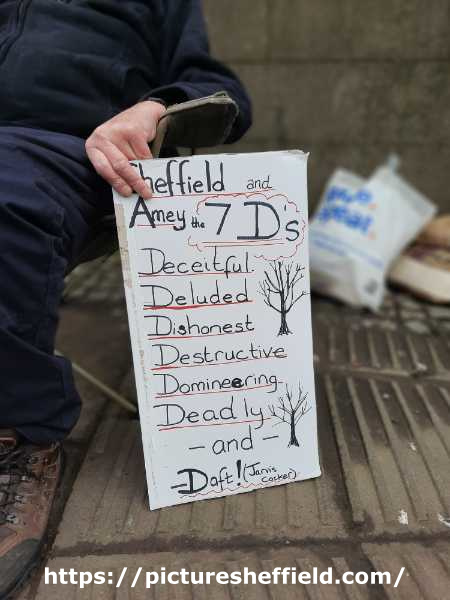 Sheffield and
Amey the 7 D's
Deceitful
Deluded
Dishonest
Destructive
Domineering
Deadly
- and -
- Daft! (Jarvis
Cocker)
https://picturesheffield.com/